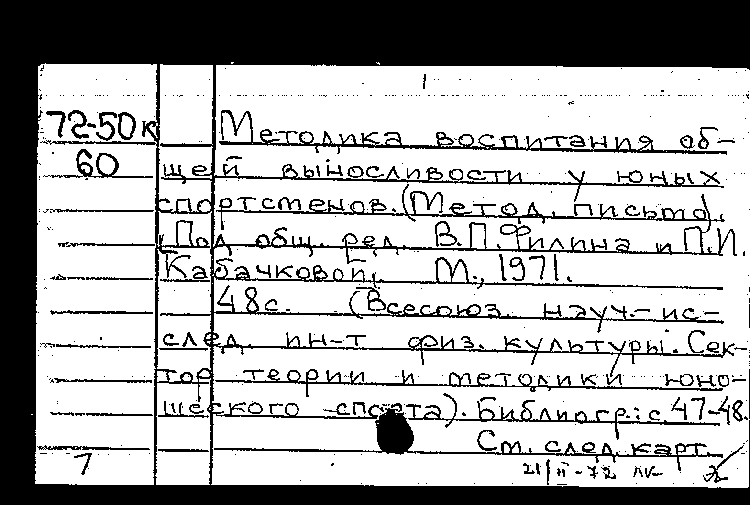 72-50к Методика воспитания об-
60 щей выносливости у юных
спортсменов. (Метод. письмо).
Под общ. ред. В.П.Филина и П.И.
Кабачковой. М., 1971.
48с. (Всесоюз. науч.-ис-
след. ин-т физ. культуры. Сек-
тор теории и методики юно-
шеского спорта). Библиогр: с. 47-48.
См. след карт.
7 21/II-72